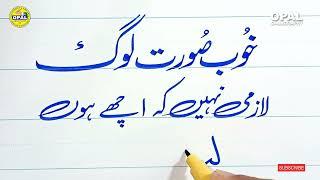 OPAL
OPAL
خُوب صُورت لوگ
لازمی نہیں کہ اچھے ہوں
لیـ
SUBSCRIBE